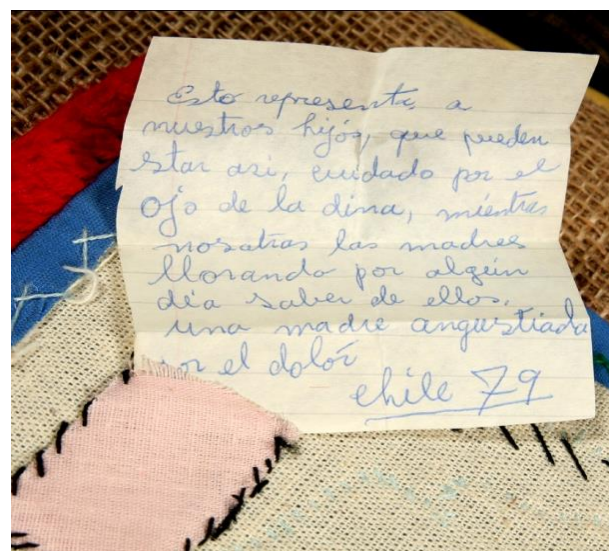 Esto representa a
nuestros hijos, que pueden
star asi, cuidado por el
ojo de la dina, mientras
nosotras las madres
llorando por algún
día saber de ellos.
una madre angustiada
por el dolór
chile 79